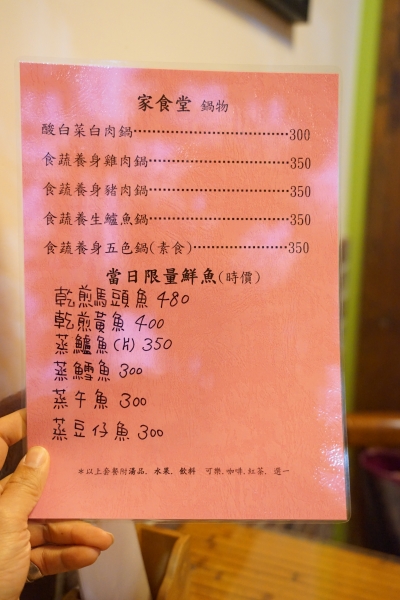 家食堂 鍋物
酸白菜白肉鍋································300
食蔬養身雞肉鍋····························350
食蔬養身豬肉鍋····························350
食蔬養生鱸魚鍋····························350
食蔬養身五色鍋(素食)··················350
當日限量鮮魚(時價)
乾煎馬頭魚 480
乾煎黃魚 400
蒸鱸魚(片) 350
蒸鱈魚 300
蒸午魚 300
蒸豆仔魚 300
*以上套餐附湯品. 水果. 飲料 可樂.咖啡.紅茶. 選一